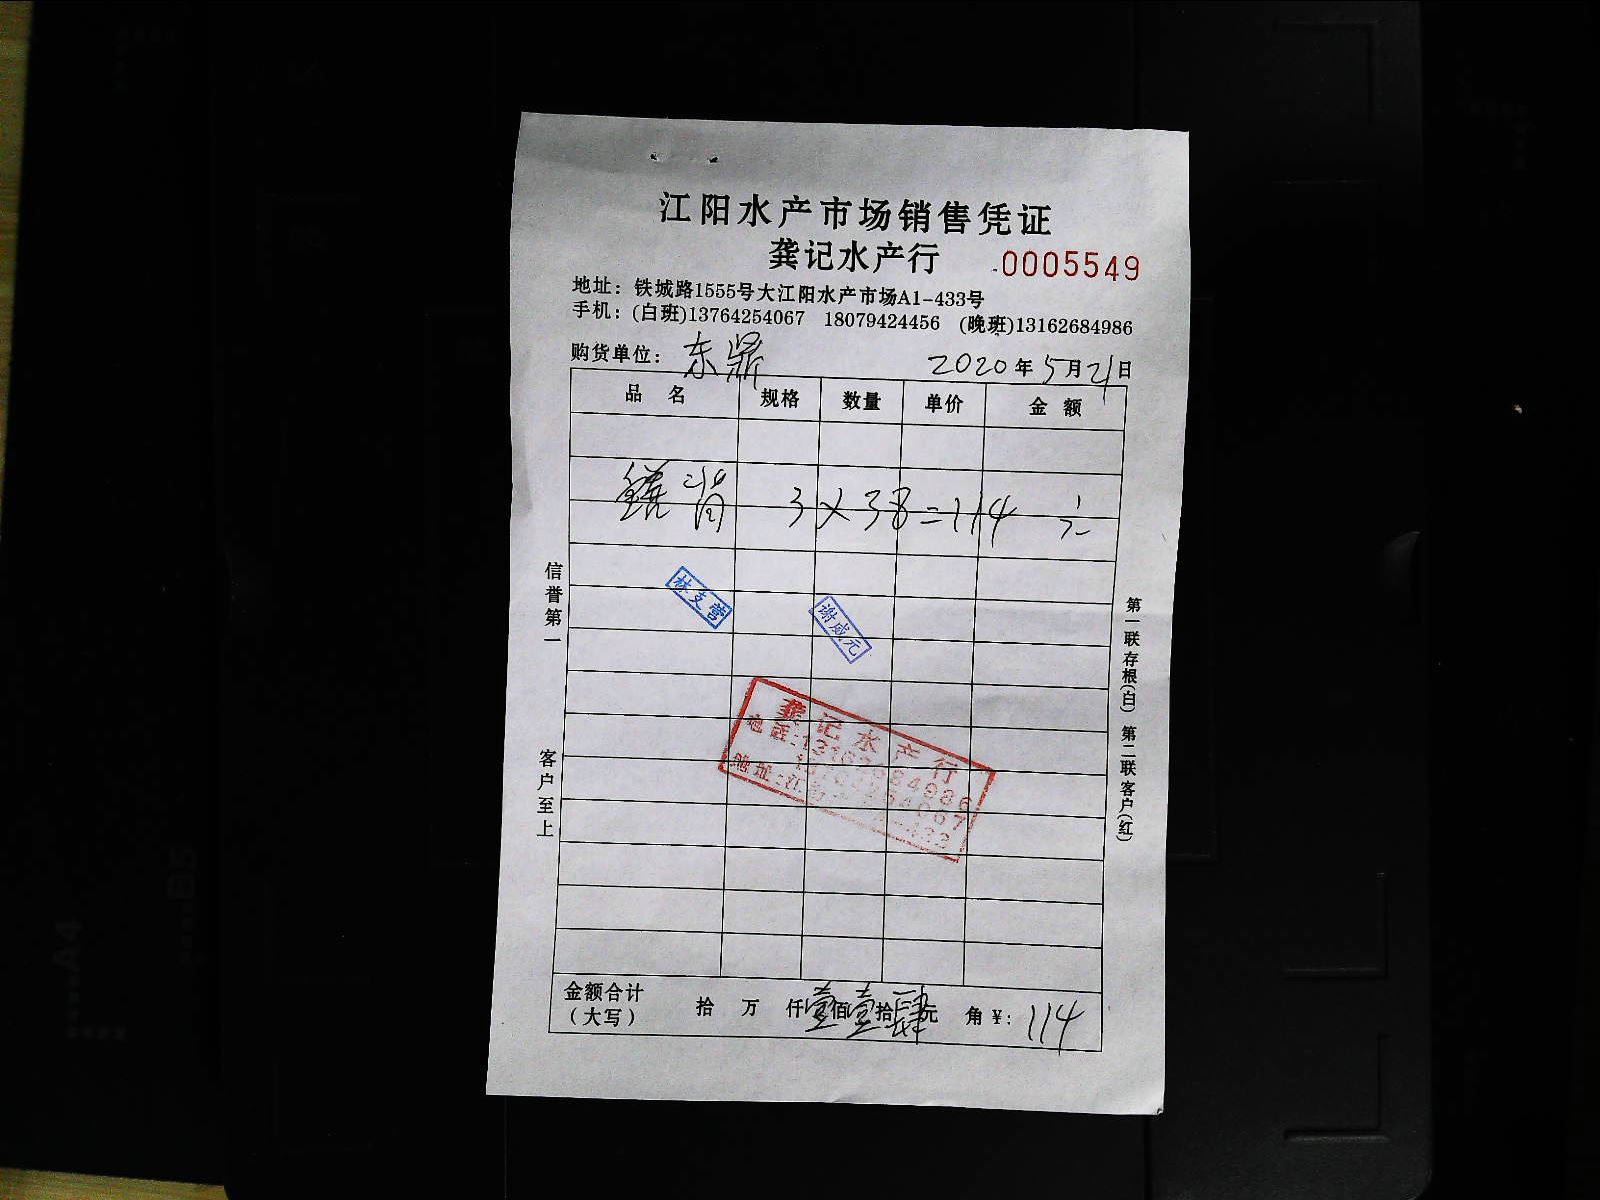 江阳水产市场销售凭证
龚记水产行 0005549
地址：铁城路1555号大江阳水产市场A1-433号
手机：(白班)13764254067 18079424456 (晚班)13162684986
购货单位：东 2020年5月21日
品名 规格 数量 单价 金额
3×38=114 元
信誉第一
客户至上
林支营
谢成元
龚记水产行
电话:13162684986
13764254067
地址:江 -433
第一联存根(白) 第二联客户(红)
金额合计（大写） 拾 万 仟壹佰壹拾肆元 角 ¥: 114
A4
B5